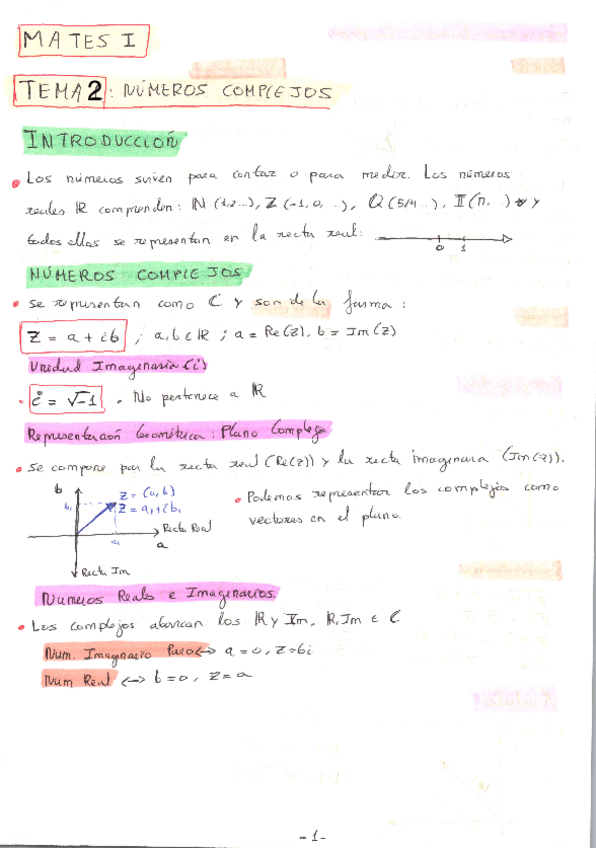 MATES I
TEMA 2: NÚMEROS COMPLEJOS
INTRODUCCIÓN
• Los números sirven para contar o para medir. Los números
reales ℝ comprenden: ℕ (1,2...), ℤ (-1,0, ..), ℚ (5/4...), 𝕀 (π, ..) y
todos ellos se representan en la recta real:
0 1
NÚMEROS COMPLEJOS
• Se representan como ℂ y son de la forma:
Z = a + ib ; a,b ∈ ℝ ; a = Re(Z), b = Im(Z)
Unidad Imaginaria (i)
• i = √-1 . No pertenece a ℝ
Representación Geométrica: Plano Complejo
• Se compone por la recta real (Re(z)) y la recta imaginaria (Im(z)).
b
b₁
Z = (a, b)
Z = a₁ + ib₁
Recta Real
a₁
a
Recta Im
• Podemos representar los complejos como
vectores en el plano.
Números Reales e Imaginarios.
• Los complejos abarcan los ℝ y Im. ℝ, Im ∈ ℂ
Num. Imaginario Puro ↔ a = 0, Z = bi
Num Real ↔ b = 0, Z = a
- 1 -